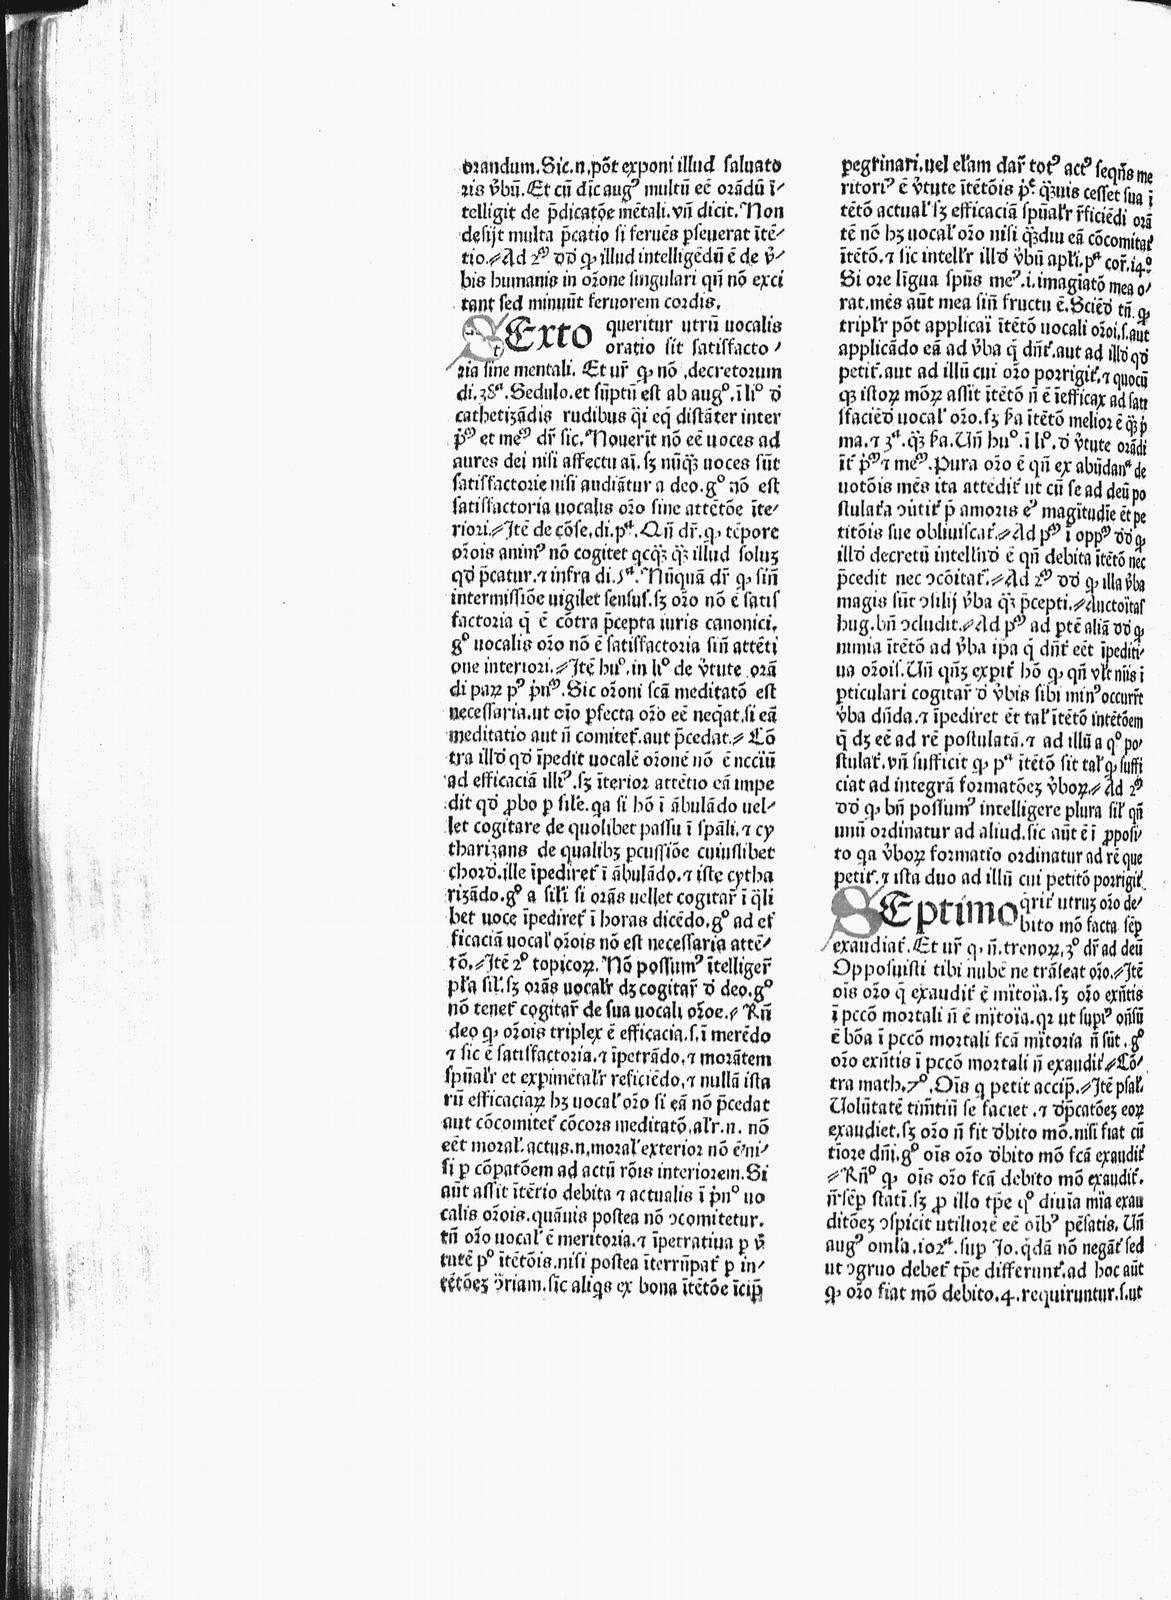 orandum.Sic.n.põt exponi illud saluato
ris v̾bũ. Et cũ dĩc augꝰ multũ eẽ orãdũ ĩ⸗
telligit de p̃dicatõe mẽtali.vñ dicit. Non
desijt multa p̃catio si feruẽs pseuerat ĩtẽ⸗
tio.⸗Ad 2ᵐ illud intelligẽdũ ẽ de v̾⸗
bis humanis in oro̅ne singulari qñ nõ exci
tant sed minuũt feruorem cordis.
SExto queritur utrũ uocalis
oratio sit satisfacto⸗
ria sine mentali. Et ur̃ ꝙ nõ .decretorum
di.38ª. Sedulo.et sũptũ est ab augº.ĩ liº đ
cathetizãdis rudibus q̃i eq̨ distãter inter
p̃ᵐ et meᵐ dr̃ sic. Nouerĩt nõ eẽ uoces ad
aures dei nisi affectu aĩ.sꝫ nũq̃ꝫ uoces sũt
satisfactorie nisi audiãtur a deo.gº nõ est
satisfactoria uocalis oro̅ sine attẽtõe ĩte⸗
riori.⸗Itẽ de cõse.di.pª. Qñ dr̃.ꝙ tẽpore
oro̅is animꝰ nõ cogitet qcqꝫ q̃ꝫ illud soluꝫ
qđ p̃catur.⁊ infra di.5ª. Nũquã dr̃ ꝙ siñ
intermissiõe uigilet sensus.sꝫ oro̅ nõ ẽ satis
factoria q̃ ẽ cõtra p̃cepta iuris canonici.
gº uocalis oro̅ nõ ẽ satisfactoria siñ attẽti
one interiori.⸗Itẽ huº.in liº de v̾tute orã
di paꝝ pꝰ p̃nᵐ. Sic oro̅ni scã meditatõ est
necessaria.ut oro̅ pfecta oro̅ eẽ neq̃at.si eã
meditatio aut ñ comitet̃.aut p̃cedat.⸗Cõ
tra illđ qđ ĩpedit uocalẽ oro̅nẽ nõ ẽ ncciũ
ad efficaciã illiꝰ.sꝫ ĩterior attẽtio eã impe
dit qđ ꝓbo ꝑ sil̃e.qa si hõ ĩ ãbulãdo uel⸗
let cogitare de quolibet passu ĩ spãli.⁊ cy
tharizans de qualibꝫ ꝑcussiõe cuiuslibet
chorđ.ille ĩpediret̃ ĩ ãbulãdo.⁊ iste cytha
rizãdo.gº a sil̃i si orãs uellet cogitar̃ ĩ q̃li
bet uoce ĩpediret̃ ĩ horas dicẽdo.gº ad ef
ficaciã uocal̃ oro̅is nõ est necessaria attẽ⸗
tõ.⸗Itẽ 2º topicoꝝ. Nõ possumꝰ ĩtelliger̃
pl̃a sil̃.sꝫ orãs uocalr̃ dꝫ cogitar̃ đ deo.gº
nõ tenet̃ cogitar̃ de sua uocali oro̅e.⸗Rñ
deo ꝙ oro̅is triplex ẽ efficacia.s.ĩ merẽdo
⁊ sic ẽ satisfactoria.⁊ ĩpetrãdo.⁊ morãtem
spũalr̃ et expimẽtalr̃ reficiẽdo.⁊ nullã ista
rũ efficaciaꝝ hꝫ uocal̃ oro̅ si eã nõ p̃cedat
aut cõcomitet̃ cõcors meditatõ.alr̃.n. nõ
eẽt moral̃.actus.n.moral̃ exterior nõ ẽ ni⸗
si ꝑ cõpatõem ad actũ rõis interiorem. Si
aũt assit ĩtẽtio debita ⁊ actualis ĩ p̃nº uo
calis oro̅is.quãuis postea nõ ↄcomitetur.
tñ oro̅ uocal̃ ẽ meritoria.⁊ ĩpetratiua ꝑ v̾
tutẽ pº ĩtẽtõis.nisi postea ĩterrũpat̃ ꝑ in⸗
tẽtõeꝫ ↄ̃riam.sic aliq̃s ex bona ĩtẽtõe ĩcip̃
pegrinari.uel el̃am dar̃ totꝰ actꝰ seqñs me
ritoriꝰ ẽ v̾tute ĩtẽtõis p̃ᵉ q̃ꝫuis cesset sua ĩ
tẽtõ actual̃ sꝫ efficaciã spũalr̃ r̃ficiẽdi orã
tẽ nõ hꝫ uocal̃ oro̅ nisi q̃ꝫdiu eã cõcomitat̃
ĩtẽtõ.⁊ sic intellr̃ illđ v̾bũ apl̃i.pª cor̃.14º
Si ore lĩgua spũs meꝰ.i.imagĩatõ mea o⸗
rat.mẽs aũt mea siñ fructu ẽ. Sciẽđ tñ ꝙ
triplr̃ põt applicaĩ ĩtẽtõ uocali oro̅i.s.aut
applicãdo eã ad v̾ba q̃ dñt̃.aut ad illđ qđ
petit̃.aut ad illũ cui oro̅ porrigit̃.⁊ quocũ
qꝫ istoꝝ moꝝ assit ĩtẽtõ ñ ẽ ĩefficax ad sati
sfaciẽđ uocal̃ oro̅.sꝫ ẜa ĩtẽtõ melior ẽ q̃ꝫ p̃
ma.⁊ 3ª.q̃ꝫ ẜa. Uñ huº.ĩ liº.đ v̾tute orãdi
ĩt̃ p̃ᵐ ⁊ meᵐ. Pura oro̅ ẽ qñ ex abũdanª de
uotõis mẽs ita attẽdit̃ ut cũ se ad deũ po
stulat̃a ↄ̃ũtit̃ p̃ amoris eꝰ magĩtudĩe ẽt pe
titõis sue obliuiscat̃.⸗Ad pᵐ ĩ oppᵐ ꝙ
illđ decretũ intellĩđ ẽ qñ debita ĩtẽtõ nec
p̃cedit nec ↄcõitat̃.⸗Ad 2ᵐ ꝙ illa v̾ba
magis sũt ↄsilij v̾ba q̃ꝫ p̃cepti.⸗Auctoĩtas
hug.bñ ↄcludit.⸗Ad pᵐ ad ptẽ aliã ꝙ
nimia ĩtẽtõ ad v̾ba ip̃a q̃ dñt̃ eẽt ĩpediti⸗
ua oro̅is. Uñ qñꝫ expit̃ hõ ꝙ qñ vl̃t nĩis ĩ
ꝑticulari cogitar̃ đ v̾bis sibi minꝰ occurrt̃
v̾ba dñda.⁊ ĩpediret ẽt tal̃ ĩtẽtõ intẽtõem
q̃ dꝫ eẽ ad rẽ postulatã.⁊ ad illũ a qº po⸗
stulat̃.vñ sufficit ꝙ pª ĩtẽtõ sit tal̃ ꝙ suffi
ciat ad integrã formatõeꝫ v̾boꝝ.⸗Ad 2ᵐ
ꝙ bñ possumꝰ intelligere plura sil̃ qñ
unũ ordinatur ad aliud.sic aũt ẽ ĩ ꝓposi⸗
to qa v̾boꝝ formatio ordinatur ad rẽ que
petit̃.⁊ ista duo ad illũ cui petitõ porrigit̃
SEptimo qrit̃ utruꝫ oro̅ de⸗
bito mõ facta sẽp
exaudiat̃. Et ur̃ ꝙ ñ.trenoꝝ.3º dr̃ ad deũ
Opposuisti tibi nubẽ ne trãseat oro̅.⸗Itẽ
oĩs oro̅ q̃ exaudit̃ ẽ mĩtoĩa.sꝫ oro̅ exñtis
ĩ pccõ mortali ñ ẽ mĩtoĩa.qꝛ ut supiꝰ oñsũ
ẽ bõa ĩ pccõ mortali ẜcã mĩtoria ñ sũt.gº
oro̅ exñtis ĩ pccõ mortali ñ exaudit̃.⸗Cõ⸗
tra math.7º. Oĩs q petit accip̃.⸗Itẽ psal̃.
Uolũtatẽ timẽtiũ se faciet .⁊ đp̃catõeꝫ eoꝝ
exaudiet.sꝫ oro̅ ñ fit đbito mõ.nisi fiat cũ
tĩore dñi.gº oĩs oro̅ đbito mõ ẜcã exaudit̃
⸗Rñº ꝙ oĩs oro̅ ẜcã debito mõ exaudit̃.
ñ sẽp statĩ.sꝫ ꝓ illo tp̃e qº diuĩa mĩa exau
ditõeꝫ ↄspicit utiliorẽ eẽ oĩbꝰ pẽsatis. Uñ
augꝰ omla.102ª.sup Jo.q̃dã nõ negãt̃ sed
ut ↄgruo debet̃ tp̃e differunt̃.ad hoc aũt
ꝙ oro̅ fiat mõ debito.4.requiruntur.s.ut